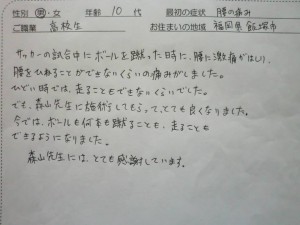 性別 男・女 年齢 10 代 最初の症状 腰の痛み
ご職業 高校生 お住まいの地域 福岡県飯塚市
サッカーの試合中にボールを蹴った時に、腰に激痛がはしり、
腰をひねることができないくらいの痛みがしました。
ひどい時では、走ることもできないくらいでした。
でも、森山先生に施術してもらって、とても良くなりました。
今では、ボールも何本も蹴ることも、走ることも
できるようになりました。
森山先生には、とても感謝しています。